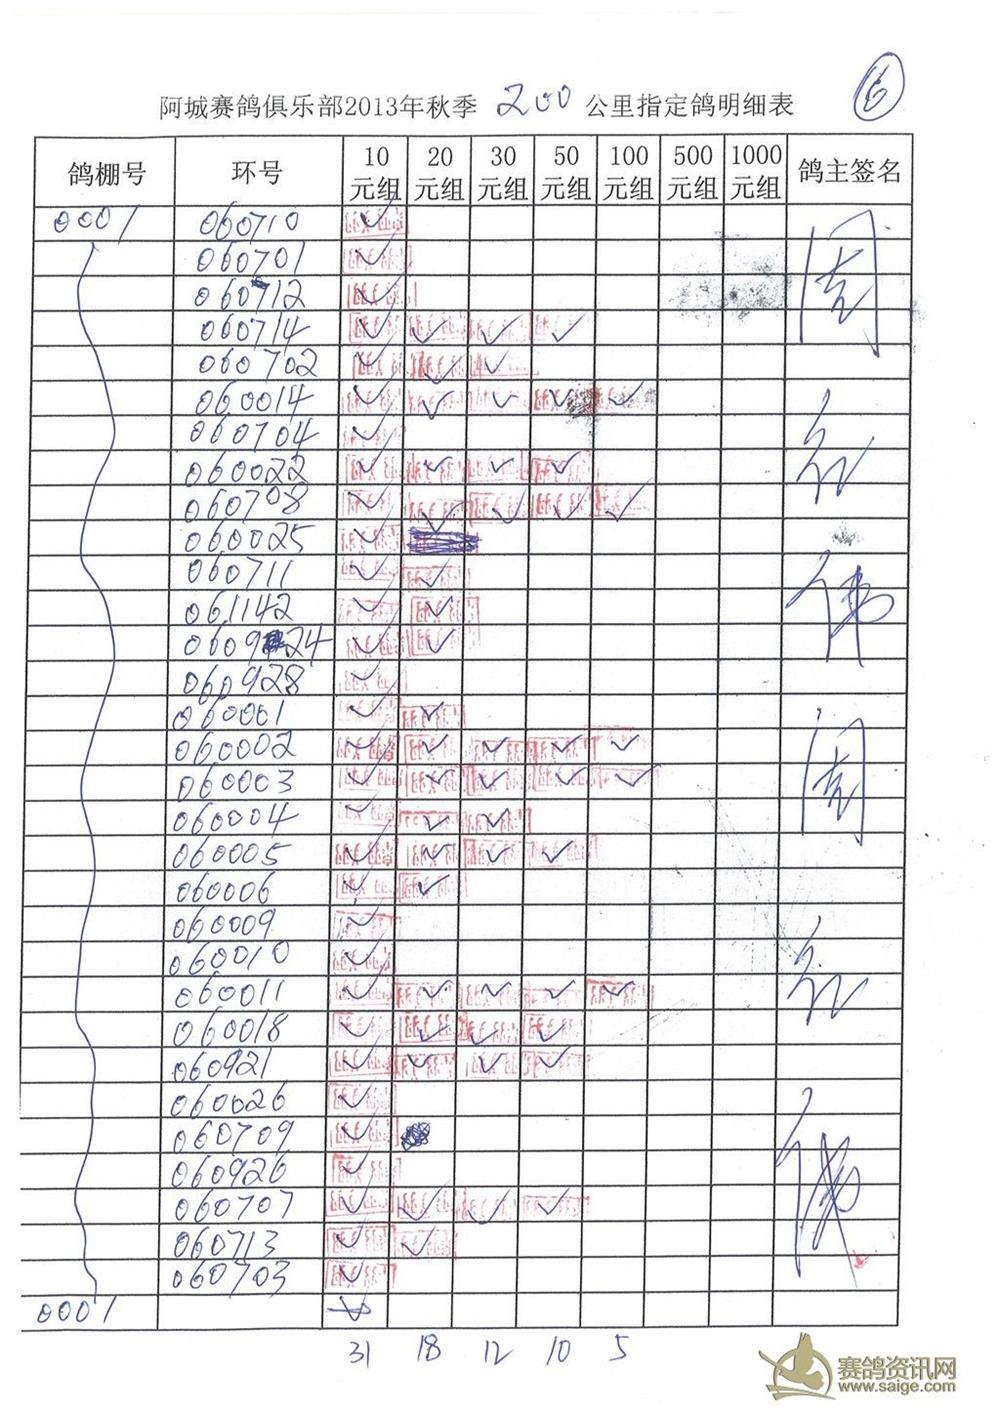 阿城赛鸽俱乐部2013年秋季 200 公里指定鸽明细表
6
鸽棚号 环号 10元组 20元组 30元组 50元组 100元组 500元组 1000元组 鸽主签名
0001 060710 ✓
060701 ✓
060712 ✓
060714 ✓ ✓ ✓ ✓
060702 ✓ ✓ ✓
060014 ✓ ✓ ✓ ✓ ✓
060704 ✓
060022 ✓ ✓ ✓ ✓
060708 ✓ ✓ ✓ ✓ ✓
060025 ✓
060711 ✓ ✓
061142 ✓ ✓
060924 ✓ ✓
060928 ✓
060001 ✓ ✓
060002 ✓ ✓ ✓ ✓ ✓
060003 ✓ ✓ ✓ ✓ ✓
060004 ✓ ✓ ✓
060005 ✓ ✓ ✓ ✓
060006 ✓ ✓
060009 ✓
060010 ✓
060011 ✓ ✓ ✓ ✓ ✓
060018 ✓ ✓ ✓ ✓
060921 ✓ ✓ ✓ ✓
060026 ✓
060709 ✓
060926 ✓
060707 ✓ ✓ ✓ ✓
060713 ✓ ✓
060703 ✓
0001
31 18 12 10 5
赛鸽资讯网
www.saige.com